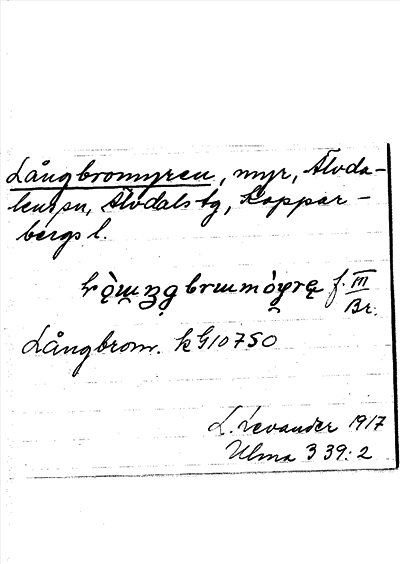 Långbromyren, myr, Älvda-
lens sn, Älvdals tg, Koppar-
bergs l.
f. III
Br.
Långbrom. k G10750
L. Levander 1917
Ulma 339:2